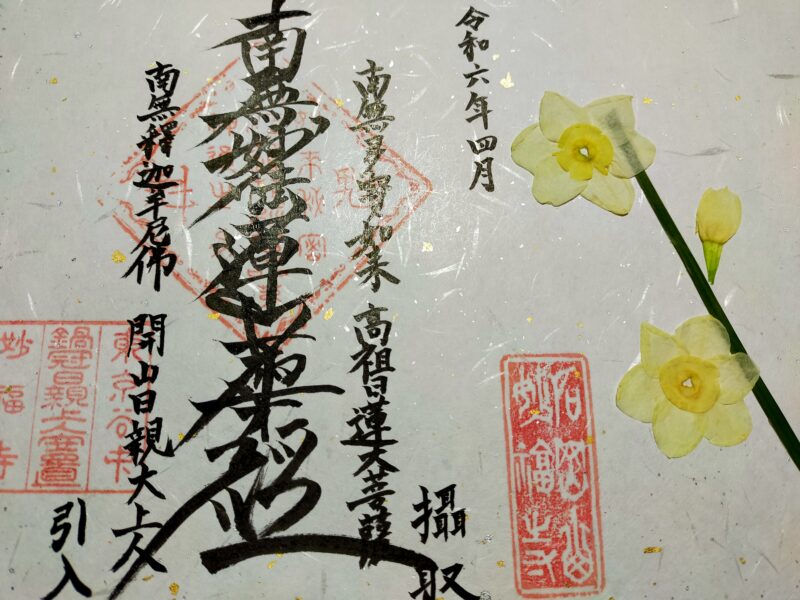 令和六年四月
南無多寶如来
高祖日蓮大菩薩
攝取
南無妙法蓮華経
南無釋迦牟尼佛
開山日親大上人
引入
東京谷中
鍋冠日親大上人安置
妙福寺